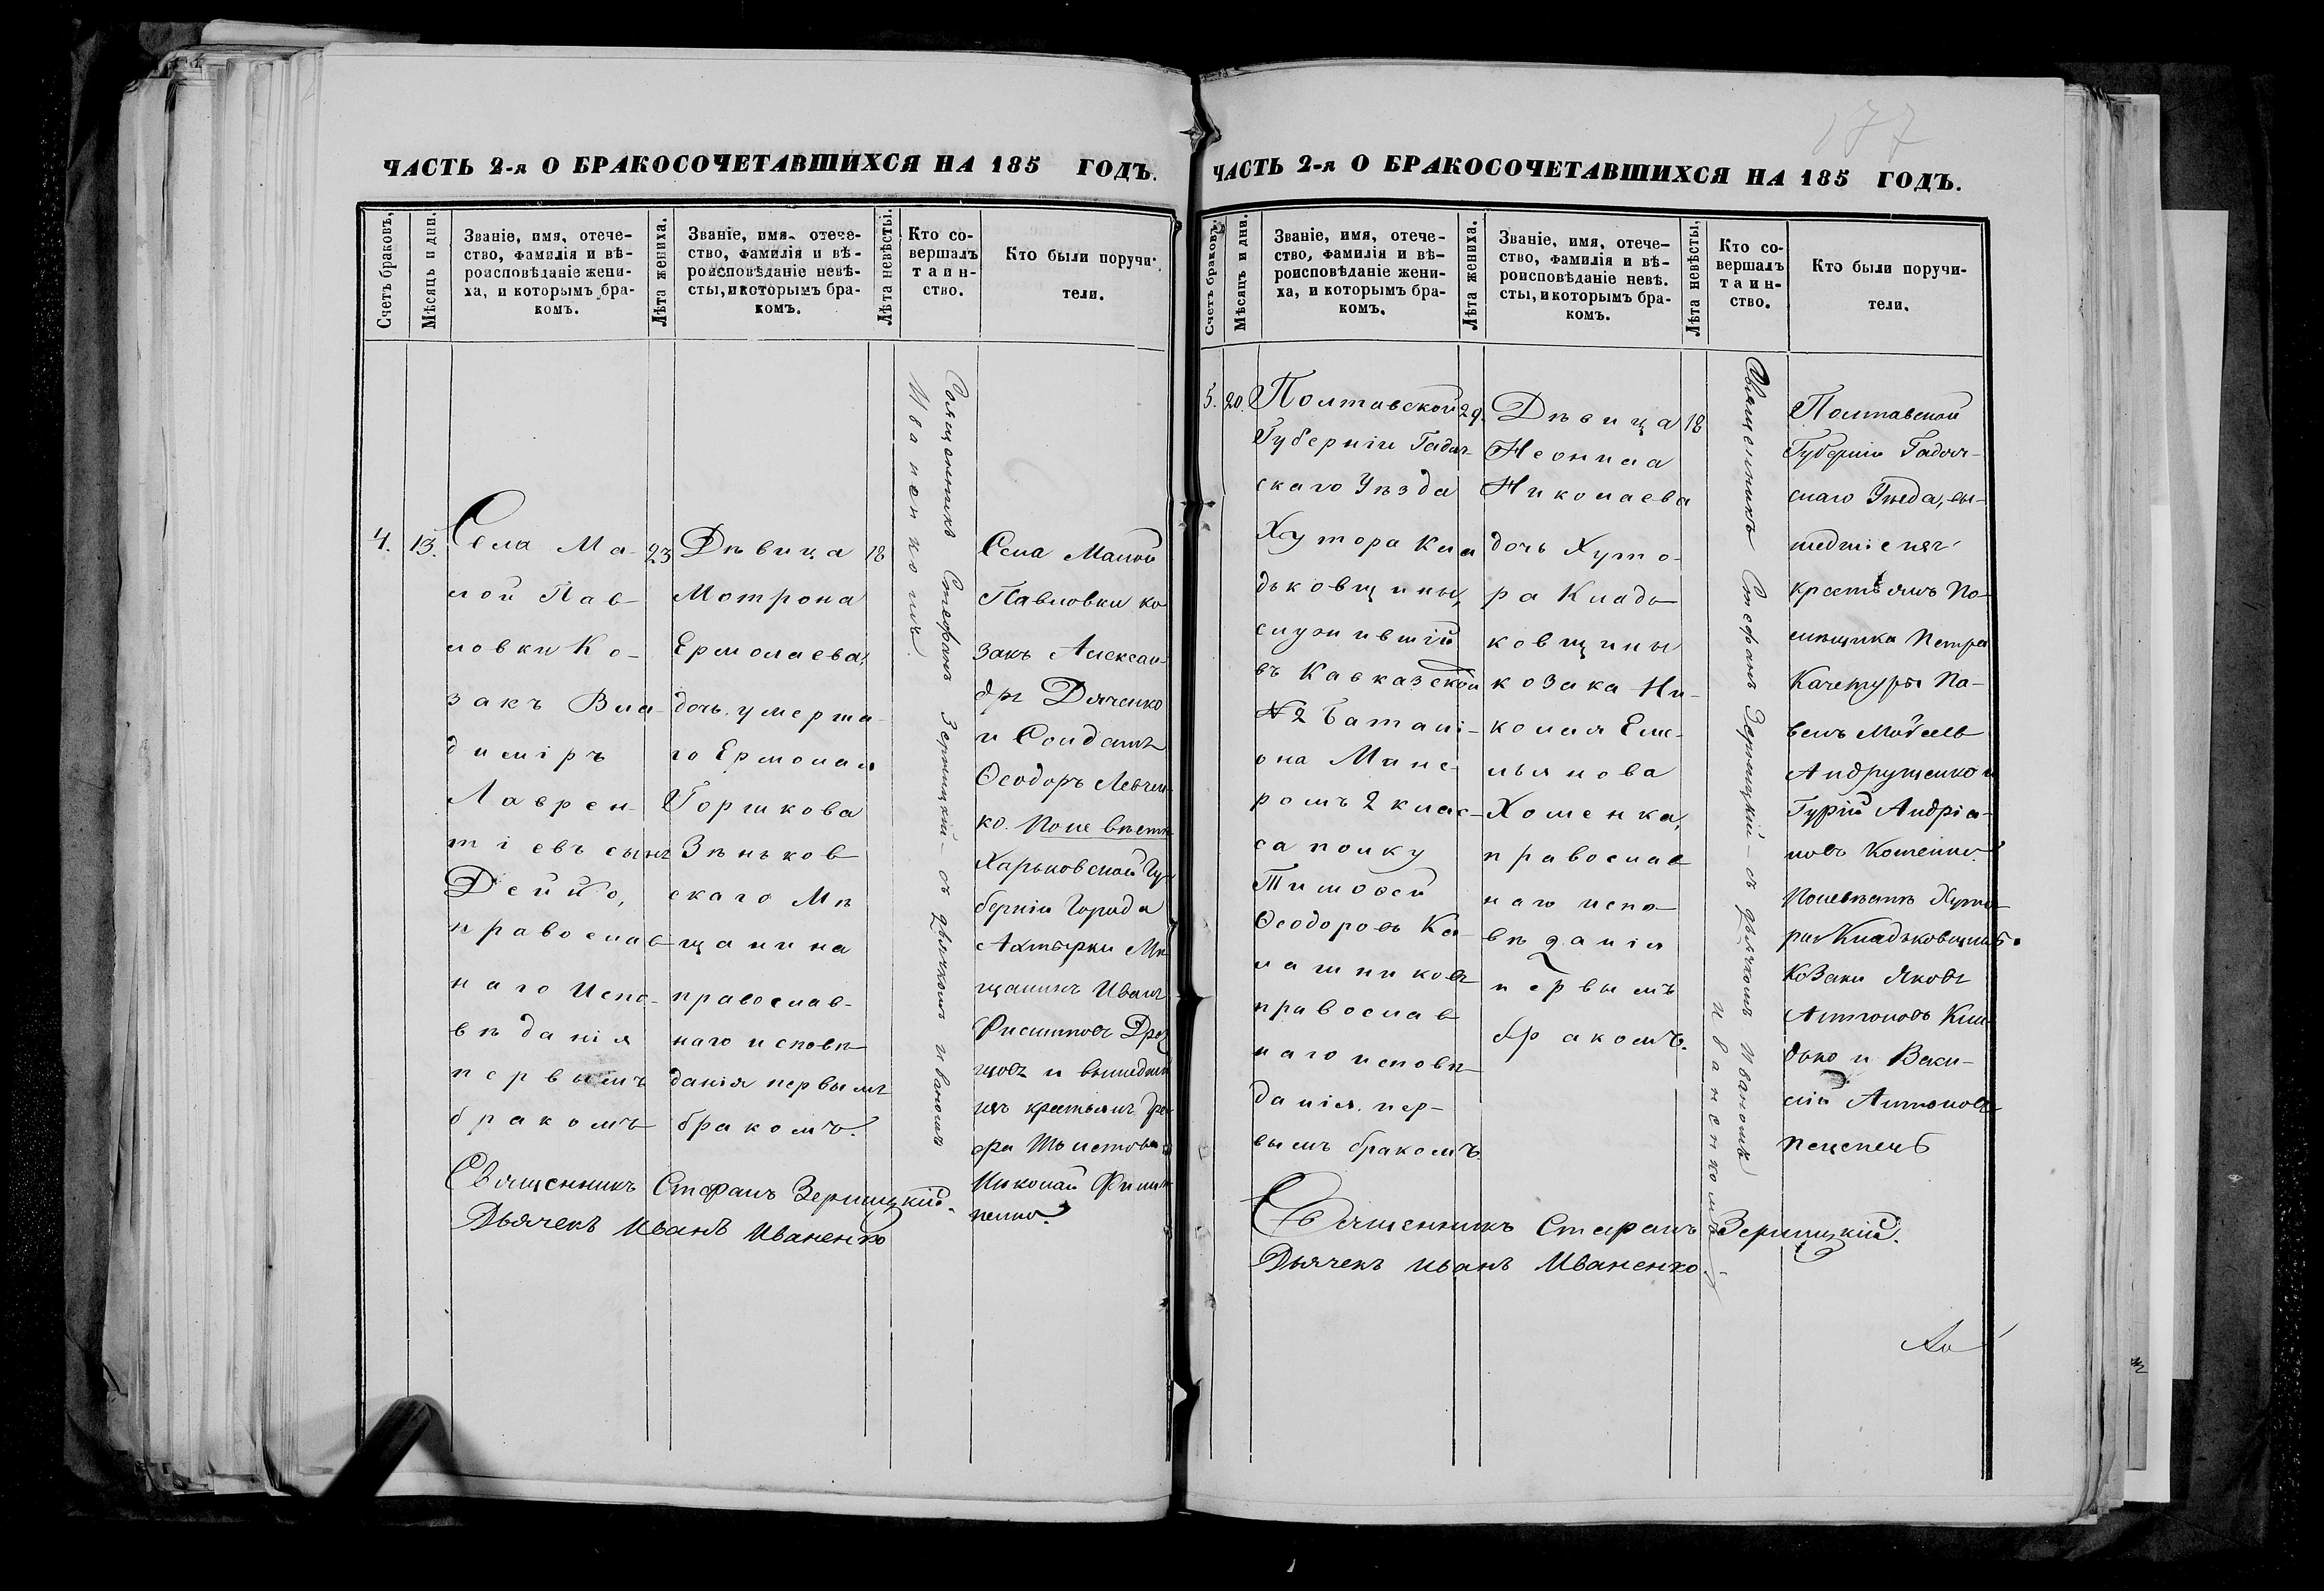 177
ЧАСТЬ 2-я О БРАКОСОЧЕТАВШИХСЯ НА 185 ГОДЪ.
Счетъ браковъ,
Мѣсяцъ и дни.
Званіе, имя, отече-
ство, фамилія и вѣ-
роисповѣданіе жени-
ха, и которымъ бра-
комъ.
Лѣта жениха.
Званіе, имя, отече-
ство, фамилія и вѣ-
роисповѣданіе невѣ-
сты, и которымъ бра-
комъ.
Лѣта невѣсты.
Кто со-
вершалъ
таин-
ство.
Кто были поручи-
тели.
4.
13.
Села Ма-
лой Пав-
ловки Ко-
закъ Вла-
диміръ
Лаврен-
тіевъ сынъ
Дейно,
православ-
наго испо-
вѣданія
первымъ
бракомъ
23
Дѣвица
Мотрона
Ермолаева,
дочь умерша-
го Ермолая
Горшкова
Зѣньков-
скаго Мѣ-
щанина
православ-
наго исповѣ-
данія первымъ
бракомъ.
18
Священникъ Стефанъ Зерницкій – съ дьячкомъ Иваномъ
Иваненкомъ.
Села Малой
Павловки ко-
закъ Алексан-
дръ Дяченко
и Солдатъ
Ѳеодоръ Левчен-
ко. По невѣстѣ
Харьковской Гу-
берніи Города
Ахтырки Мѣ-
щанинъ Иванъ
и вышедшій
изъ крестьянъ
Николай Фили-
пенко.
Священникъ Стефанъ Зерницкій.
Дьячекъ Иванъ Иваненко
ЧАСТЬ 2-я О БРАКОСОЧЕТАВШИХСЯ НА 185 ГОДЪ.
Счетъ браковъ,
Мѣсяцъ и дни.
Званіе, имя, отече-
ство, фамилія и вѣ-
роисповѣданіе жени-
ха, и которымъ бра-
комъ.
Лѣта жениха.
Званіе, имя, отече-
ство, фамилія и вѣ-
роисповѣданіе невѣ-
сты, и которымъ бра-
комъ.
Лѣта невѣсты,
Кто со-
вершалъ
таин-
ство.
Кто были поручи-
тели.
5.
20.
Полтавской
Губерніи Гадяч-
скаго Уѣзда
Хутора Кла-
дьковщины,
служившій
въ Кавказской
№ 2 Баталі-
она
2 клас-
са полку
Тимоѳей
Ѳеодоровъ Ка-
лашниковъ
православ-
наго исповѣ-
данія, пер-
вымъ бракомъ.
29.
Дѣвица
Неонила
Николаева
дочь Хуто-
ра Кладь-
ковщины
козака Ни-
колая Еме-
льянова
Хоменка,
православ-
наго испо-
вѣданія
первымъ
бракомъ.
18
Священникъ Стефанъ Зерницкій – съ дьячкомъ Иваномъ
Иваненкомъ.
Полтавской
Губерніи Гадяч-
скаго Уѣзда, вы-
шедшіе изъ
крестьянъ По-
мѣщика Петра
Качетуры Па-
велъ
Андрущенко и
Гурій Андріа-
новъ
По невѣстѣ Хуто-
ра Кладьковщины
Козаки Яковъ
Антоновъ Кла-
дько и Васи-
лій Антоновъ
Священникъ Стефанъ Зерницкій.
Дьячекъ Иванъ Иваненко